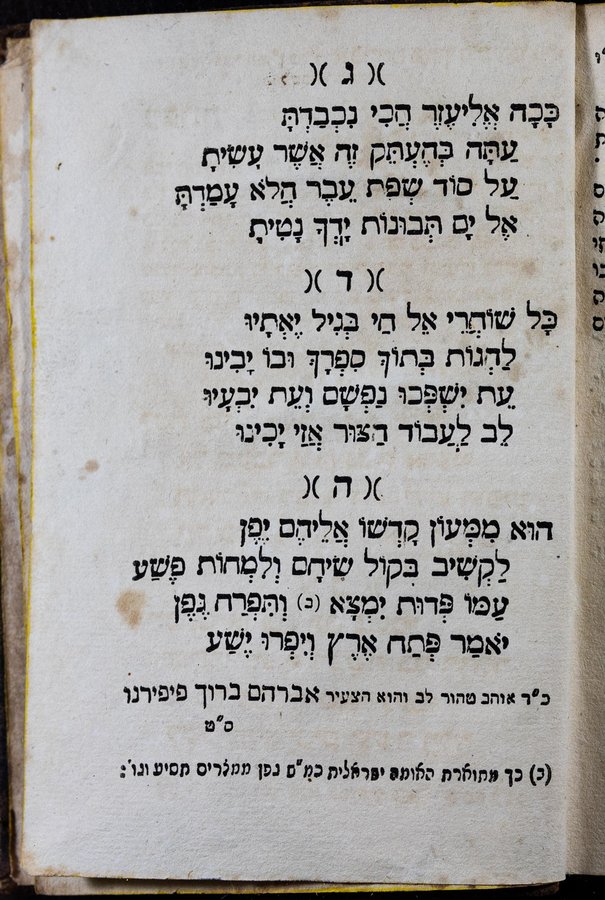 )( ג )(
כָּכָה אֱלִיעֶזֶר הֲכִי נִכְבַּדְתָּ
עַתָּה בְּהֶעְתֵּק זֶה אֲשֶׁר עָשִׂיתָ
עַל סוֹד שְׂפַת עֵבֶר הֲלֹא עָמַדְתָּ
אֶל יָם תְּבוּנוֹת יָדְךָ נָטִיתָ
)( ד )(
כָּל שׁוֹחֲרֵי אֵל חַי בְּגִיל יֶאְתָיוּ
לַהֲגוֹת בְּתוֹךְ סִפְרָךְ וּבוֹ יָבִינוּ
עֵת יִשְׁפְּכוּ נַפְשָׁם וְעֵת יִבְעָיוּ
לֵב לַעֲבוֹד הַצּוּר אֲזַי יָכִינוּ
)( ה )(
הוּא מִמְּעוֹן קָדְשׁוֹ אֲלֵיהֶם יִפֶן
לַקְשִׁיב בְּקוֹל שִׂיחָם וְלִמְחוֹת פֶּשַׁע
עַמּוֹ פְּדוּת יִמְצָא (ב) וְתִפְרַח גֶּפֶן
יֹאמַר פְּתַח אֶרֶץ וְיִפְרוּ יֶשַׁע
כ"ד אוהב טהור לב והוא הצעיר אברהם ברוך פיפירנו
ס"ט
(ב) כך מתוארת האומה ישראלית כמ"ם גפן ממצרים תסיע וגו':